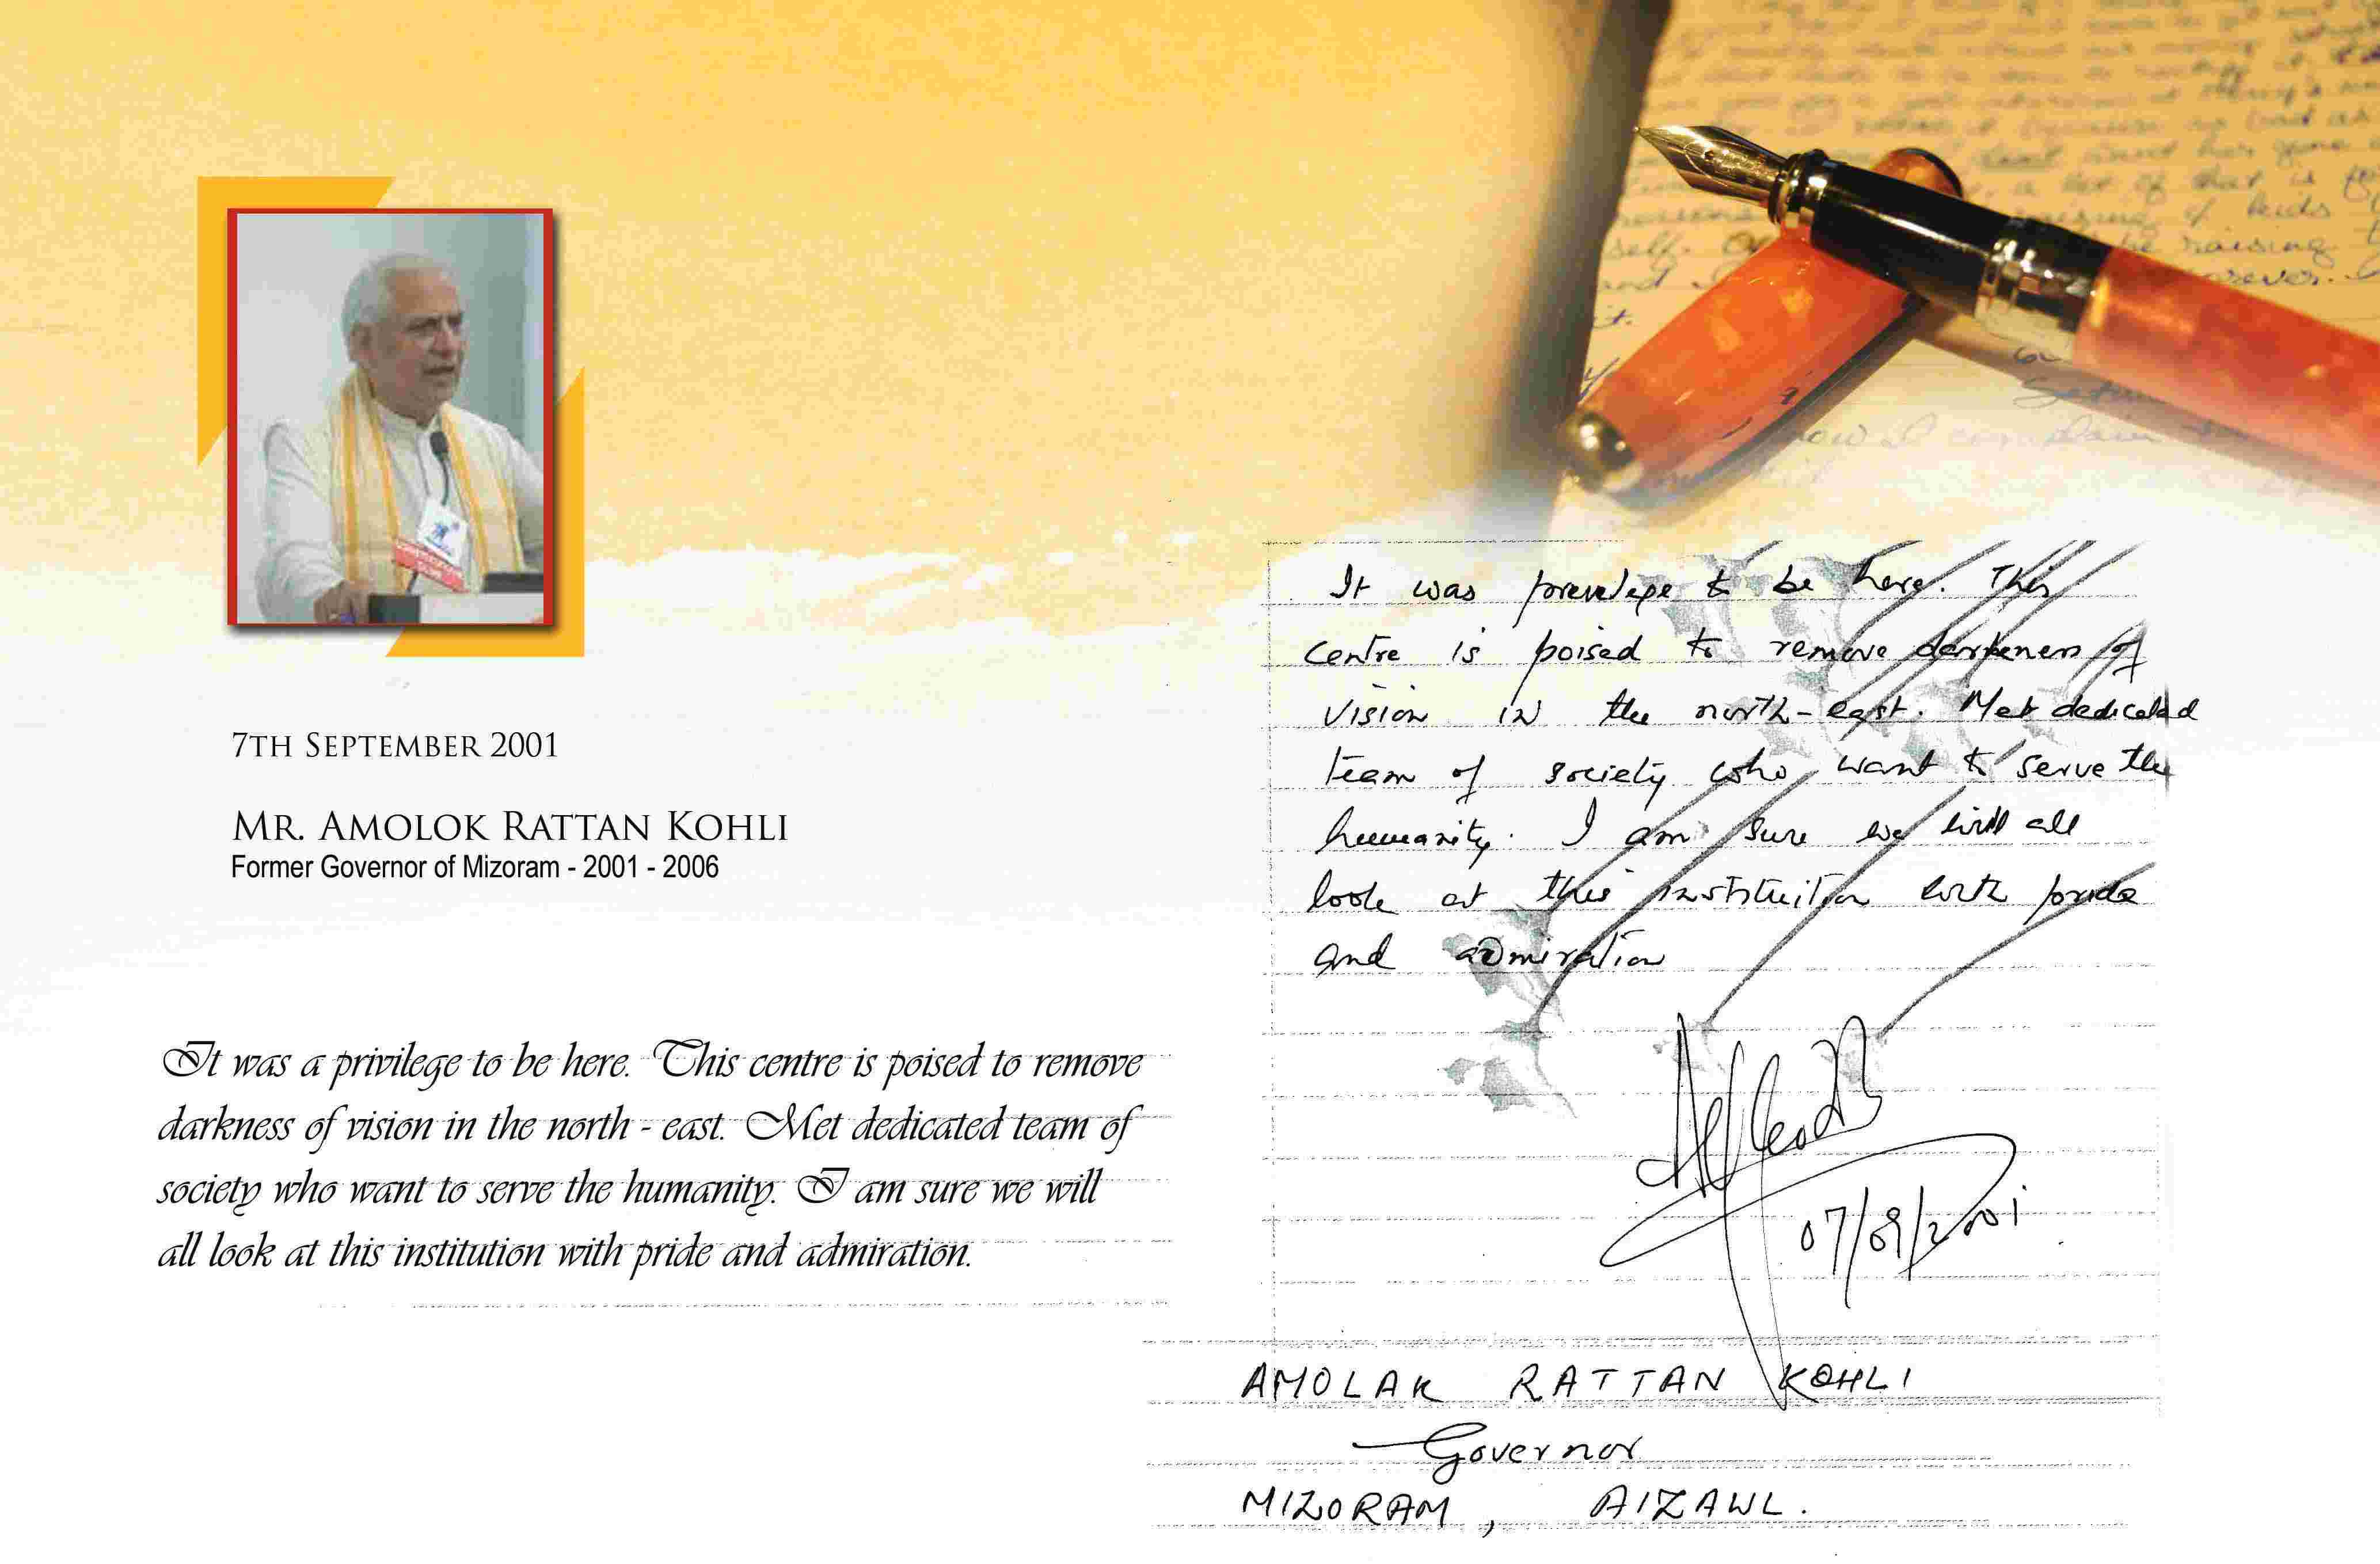 7TH SEPTEMBER 2001
MR. AMOLOK RATTAN KOHLI
Former Governor of Mizoram - 2001 - 2006
It was a privilege to be here. This centre is poised to remove
darkness of vision in the north - east. Met dedicated team of
society who want to serve the humanity. I am sure we will
all look at this institution with pride and admiration.
It was previlege to be here. This
centre is poised to remove darkeness of
vision in the north-east. Met dedicated
team of society who want to serve the
humanity. I am sure we will all
look at this instituition with pride
and admiration
07/09/2001
AMOLAK RATTAN KOHLI
Governor
MIZORAM, AIZAWL.